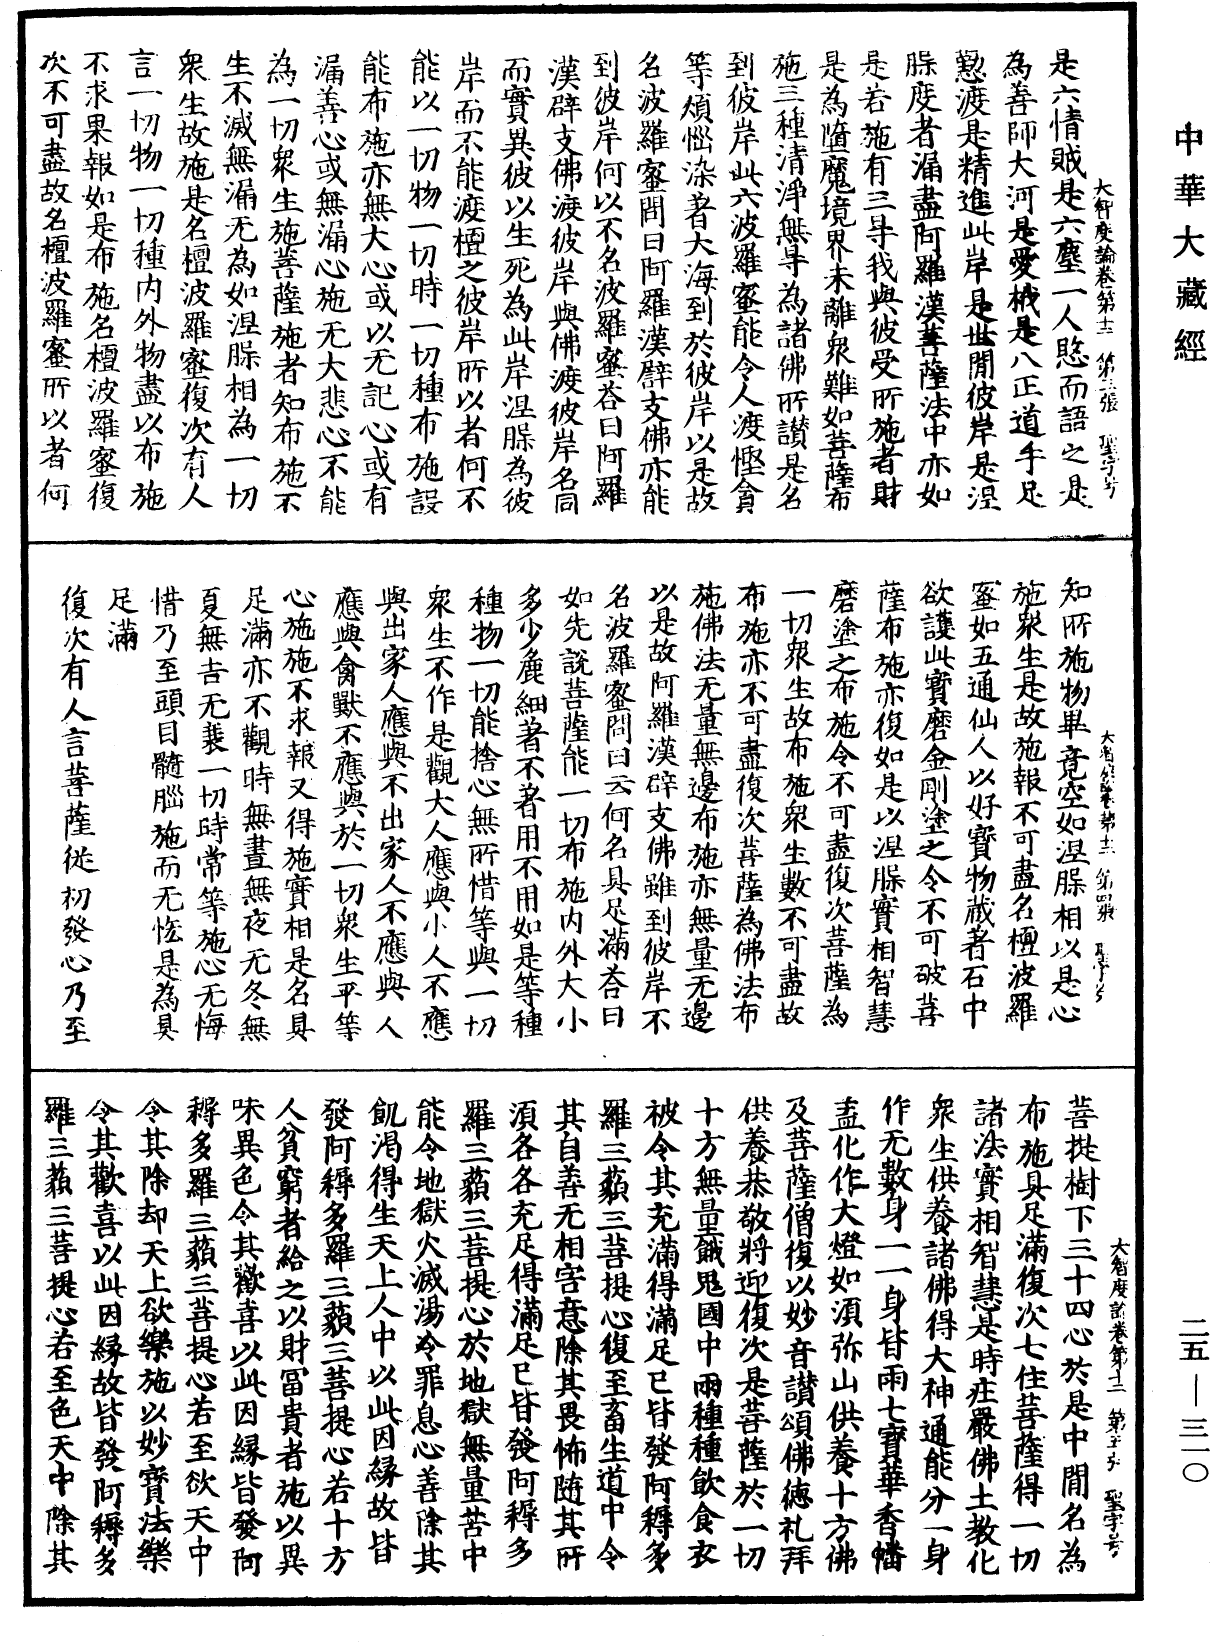 中華大藏經
二五—三一〇
大智度論卷第十二 第三張 聖字号
是六情賊是六塵一人愍而語之是
為善師大河是愛栰是八正道手足
懃渡是精進此岸是世間彼岸是涅
𦙶度者漏盡阿羅漢菩薩法中亦如
是若施有三㝵我與彼受所施者財
是為墮魔境界未離衆難如菩薩布
施三種清淨無㝵為諸佛所讃是名
到彼岸此六波羅蜜能令人渡慳貪
等煩惱染著大海到於彼岸以是故
名波羅蜜問曰阿羅漢辟支佛亦能
到彼岸何以不名波羅蜜荅曰阿羅
漢辟支佛渡彼岸與佛渡彼岸名同
而實異彼以生死為此岸涅𦙶為彼
岸而不能渡檀之彼岸所以者何不
能以一切物一切時一切種布施設
能布施亦無大心或以无記心或有
漏善心或無漏心施无大悲心不能
為一切衆生施菩薩施者知布施不
生不滅無漏无為如涅𦙶相為一切
衆生故施是名檀波羅蜜復次有人
言一切物一切種内外物盡以布施
不求果報如是布施名檀波羅蜜復
次不可盡故名檀波羅蜜所以者何
大智度論卷第十二 第四張 聖字号
知所施物畢竟空如涅𦙶相以是心
施衆生是故施報不可盡名檀波羅
蜜如五通仙人以好寶物藏著石中
欲護此寶磨金剛塗之令不可破菩
薩布施亦復如是以涅𦙶實相智慧
磨塗之布施令不可盡復次菩薩為
一切衆生故布施衆生數不可盡故
布施亦不可盡復次菩薩為佛法布
施佛法无量無邊布施亦無量无邊
以是故阿羅漢辟支佛雖到彼岸不
名波羅蜜問曰云何名具足滿荅曰
如先說菩薩能一切布施内外大小
多少麁細著不著用不用如是等種
種物一切能捨心無所惜等與一切
衆生不作是觀大人應與小人不應
與出家人應與不出家人不應與人
應與禽獸不應與於一切衆生平等
心施施不求報又得施實相是名具
足滿亦不觀時無晝無夜无冬無
夏無吉无衰一切時常等施心无悔
惜乃至頭目髓腦施而无恡是為具
足滿
復次有人言菩薩從初發心乃至
大智度論卷第十二 第五張 聖字号
菩提樹下三十四心於是中閒名為
布施具足滿復次七住菩薩得一切
諸法實相智慧是時莊嚴佛土教化
衆生供養諸佛得大神通能分一身
作无數身一一身皆雨七寶華香幡
盖化作大燈如須弥山供養十方佛
及菩薩僧復以妙音讃頌佛德礼拜
供養恭敬將迎復次是菩薩於一切
十方無量餓鬼國中雨種種飲食衣
被令其充滿得滿足已皆發阿耨多
羅三藐三菩提心復至畜生道中令
其自善无相害意除其畏怖隨其所
須各各充足得滿足已皆發阿耨多
羅三藐三菩提心於地獄無量苦中
能令地獄火滅湯冷罪息心善除其
飢渴得生天上人中以此因緣故皆
發阿耨多羅三藐三菩提心若十方
人貧窮者給之以財冨貴者施以異
味異色令其歡喜以此因緣皆發阿
耨多羅三藐三菩提心若至欲天中
令其除却天上欲樂施以妙寶法樂
令其歡喜以此因緣故皆發阿耨多
羅三藐三菩提心若至色天中除其